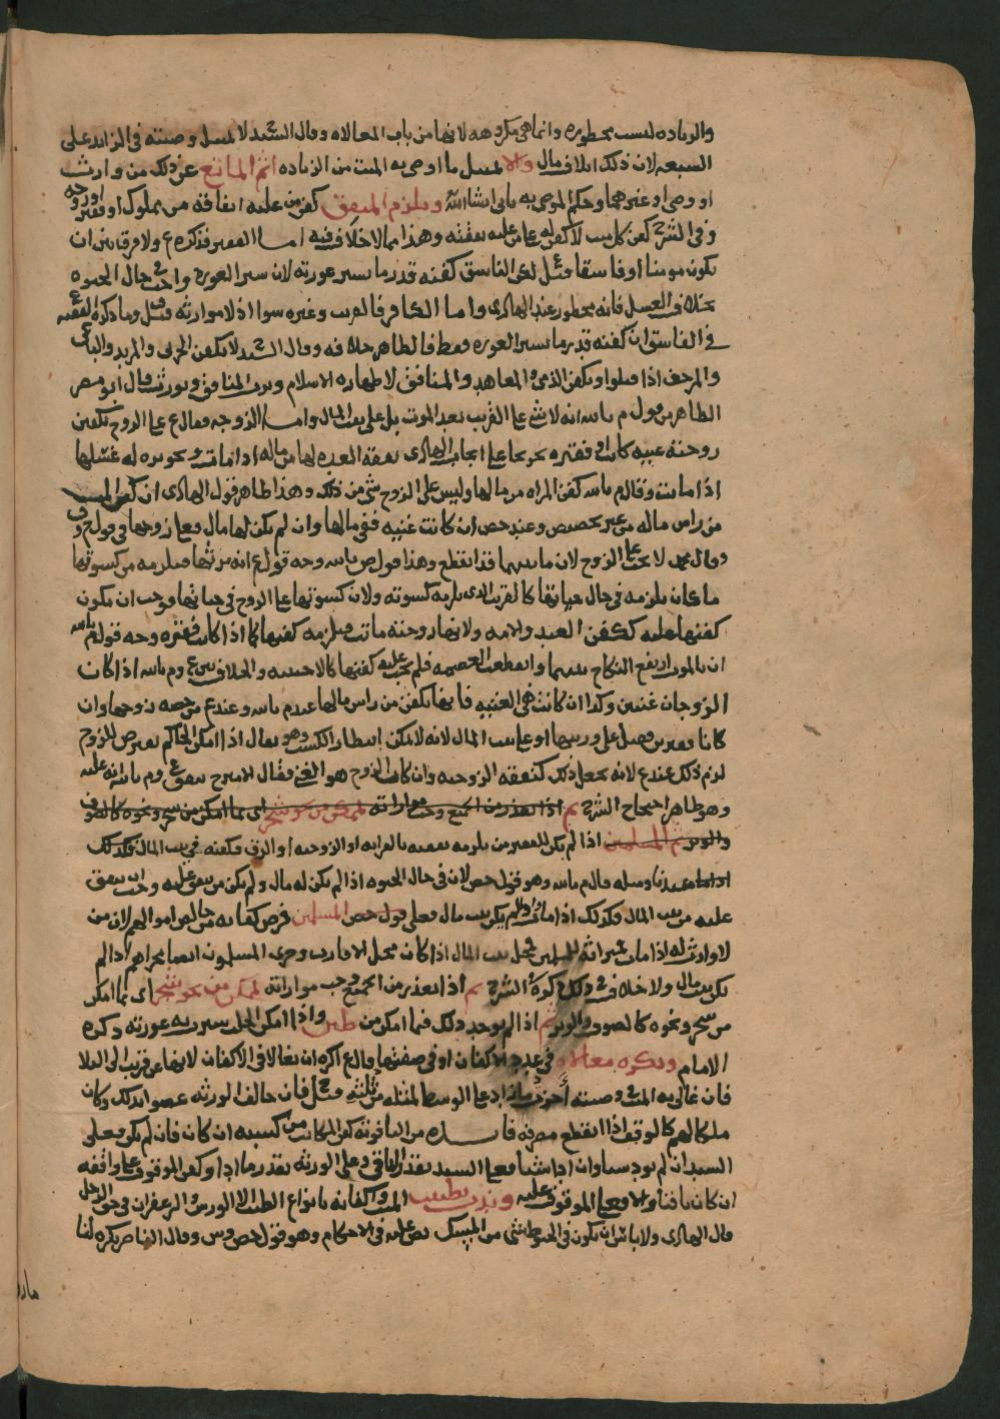 والزياده ليست بمحظوره وانما هي مكروهه لانها من باب المغالاه وقال السيد لا تمتثل وصيته في الزايد على
السبعه لان ذلك اتلاف مال والا تمتثل ما اوصى به الميت من الزياده اثم المانع عن ذلك من وارث
او وصي او غيرهما وحكم الموصى به ياتي ان شا الله ويلزم المنفق كفن من عليه انفاقه من مملوك او فقير او زوجه
وفي الشرح كفن كل ميت لا كفن له على من عليه نفقته وهذا مما لا خلاف فيه اما الفقير فذكره ع ولا فرق بين ان
يكون مومنا او فاسقا لكن الفاسق كفنه قدر ما يستر عورته لان ستر العوره واجب حال الحيوه
بخلاف الغسل فانه محظور عند الهادي واما الكافر فالقريب وغيره سوا اذ لا موارثه وما ذكره الفقيه
في الفاسق ان كفنه قدر ما يستر العوره فقط فالظاهر خلافه وقال السيد لا يكفن الحربي والمرتد والباغي
والمرجف اذا قتلوا ويكفن الذمي والمعاهد والمنافق لاظهاره الاسلام ويرث المنافق ويورث وقال ابو مضر
الظاهر من قول م بالله انه لا شي على القريب بعد الموت بل على بيت المال واما الزوجه فقال ع على الزوج تكفين
زوجته غنيه كانت او فقيره تخريجا على ايجاب الهادي نفقه العده لها من ماله اذا مات وتجويزه له غسلها
اذا ماتت وقال م بالله كفن المراه من مالها وليس على الزوج شي من ذلك وهذا ظاهر قول الهادي ان كفن الميت
من راس ماله من غير تخصيص وعند حص ان كانت غنيه ففي مالها وان لم يكن لها مال فعلى زوجها في قول
وقال محمد لا يجب على الزوج لان ما بينهما قد انقطع وهذا قول ص بالله وجه قول ع انه يرثها فيلزمه من كسوتها
ما كان يلزمه في حال حياتها كالقريب الذي يلزمه كسوته ولان كسوتها على الزوج في حياتها فوجب ان يكون
كفنها عليه ككفن العبد والامه ولانها زوجته ماتت فيلزمه كفنها كما اذا كانت فقيره وجه قول م بالله
ان بالموت ارتفع النكاح بينهما وانقطعت العصمه فلم يجب عليه كفنها كالاجنبيه والخلاف بين ع وم بالله اذا كان
الزوجان غنيين وكذا ان كانت هي الغنيه فانها تكفن من راس مالها عند م بالله وعند ع من حصه زوجها وان
كانا فقيرين فقيل على ورثتها او على بيت المال لانه لا يمكن انتظار الكسب وهو يقال اذا امكن الحاكم يقترض للزوج
لزم ذلك عند ع لانه يجعل ذلك كنفقه الزوجه وان كان الزوج هو الغني فقال م بالله انه عليه
وهو ظاهر احتجاج الشرح ثم اذا تعذر من الجميع وجب مواراته فبممكن من نحو شجر اي بما امكن من شجر ونحوه كالصوف
والوبر ثم المسلمين اذا لم يكن للفقير من يلزمه نفقته بالقرابه او الزوجيه او الرق فكفنه في بيت المال وكذلك
عندنا ومثله قال م بالله وهو قول حص لان في حال الحيوه اذا لم يكن له مال ولم يكن من ينفق عليه وجب ان ينفق
عليه من بيت المال وكذلك اذا مات واذا لم يكن بيت مال فعلى قول حص المسلمين فرض كفايه من خالص اموالهم لان من
لا وارث له اذا مات ميراثه للمسلمين فحل بيت المال اذا كان محل الاقارب وجرى المسلمون ايضا مجراهم اذا لم
يكن بيت مال ولا خلاف في ذلك ذكره في الشرح ثم اذا تعذر من الجميع وجب مواراته بممكن من نحو شجر اي بما امكن
من شجر ونحوه كالصوف والوبر ثم اذا لم يوجد ذلك فبما امكن من طين واذا امكن سترت به عورته ذكره
الامام ويكره مغالاه في عدد الاكفان او في صفتها وقال ع اكره ان يغالا في الاكفان لانها عن قريب الى البلا
فان غالى به الميت ووصيته اخرجت مازاد على الوسط لمثله من ثلثه وقيل فان خالف الورثه عصوا بذلك وكان
ملكا لهم كالوقف اذا انقطع مصرفه فايده من الياقوته كفن المكاتب من كسبه ان كان فان لم يكن فعلى
السيد ان لم يود شيا وان ادا شيا فعلى السيد بقدر الباقي وعلى الورثه بقدر ما ادا وكفن الموقوف على واقفه
ان كان باقيا والا فعلى الموقوف عليه وندب تطييب الميت واكفانه بانواع الطيب الا الورس والزعفران في حق الرجل
قال الهادي ولا باس ان يكون في الحنوط شي من المسك نص عليه في الاحكام وهو قول حص وش وقال الناصر يكره لنا